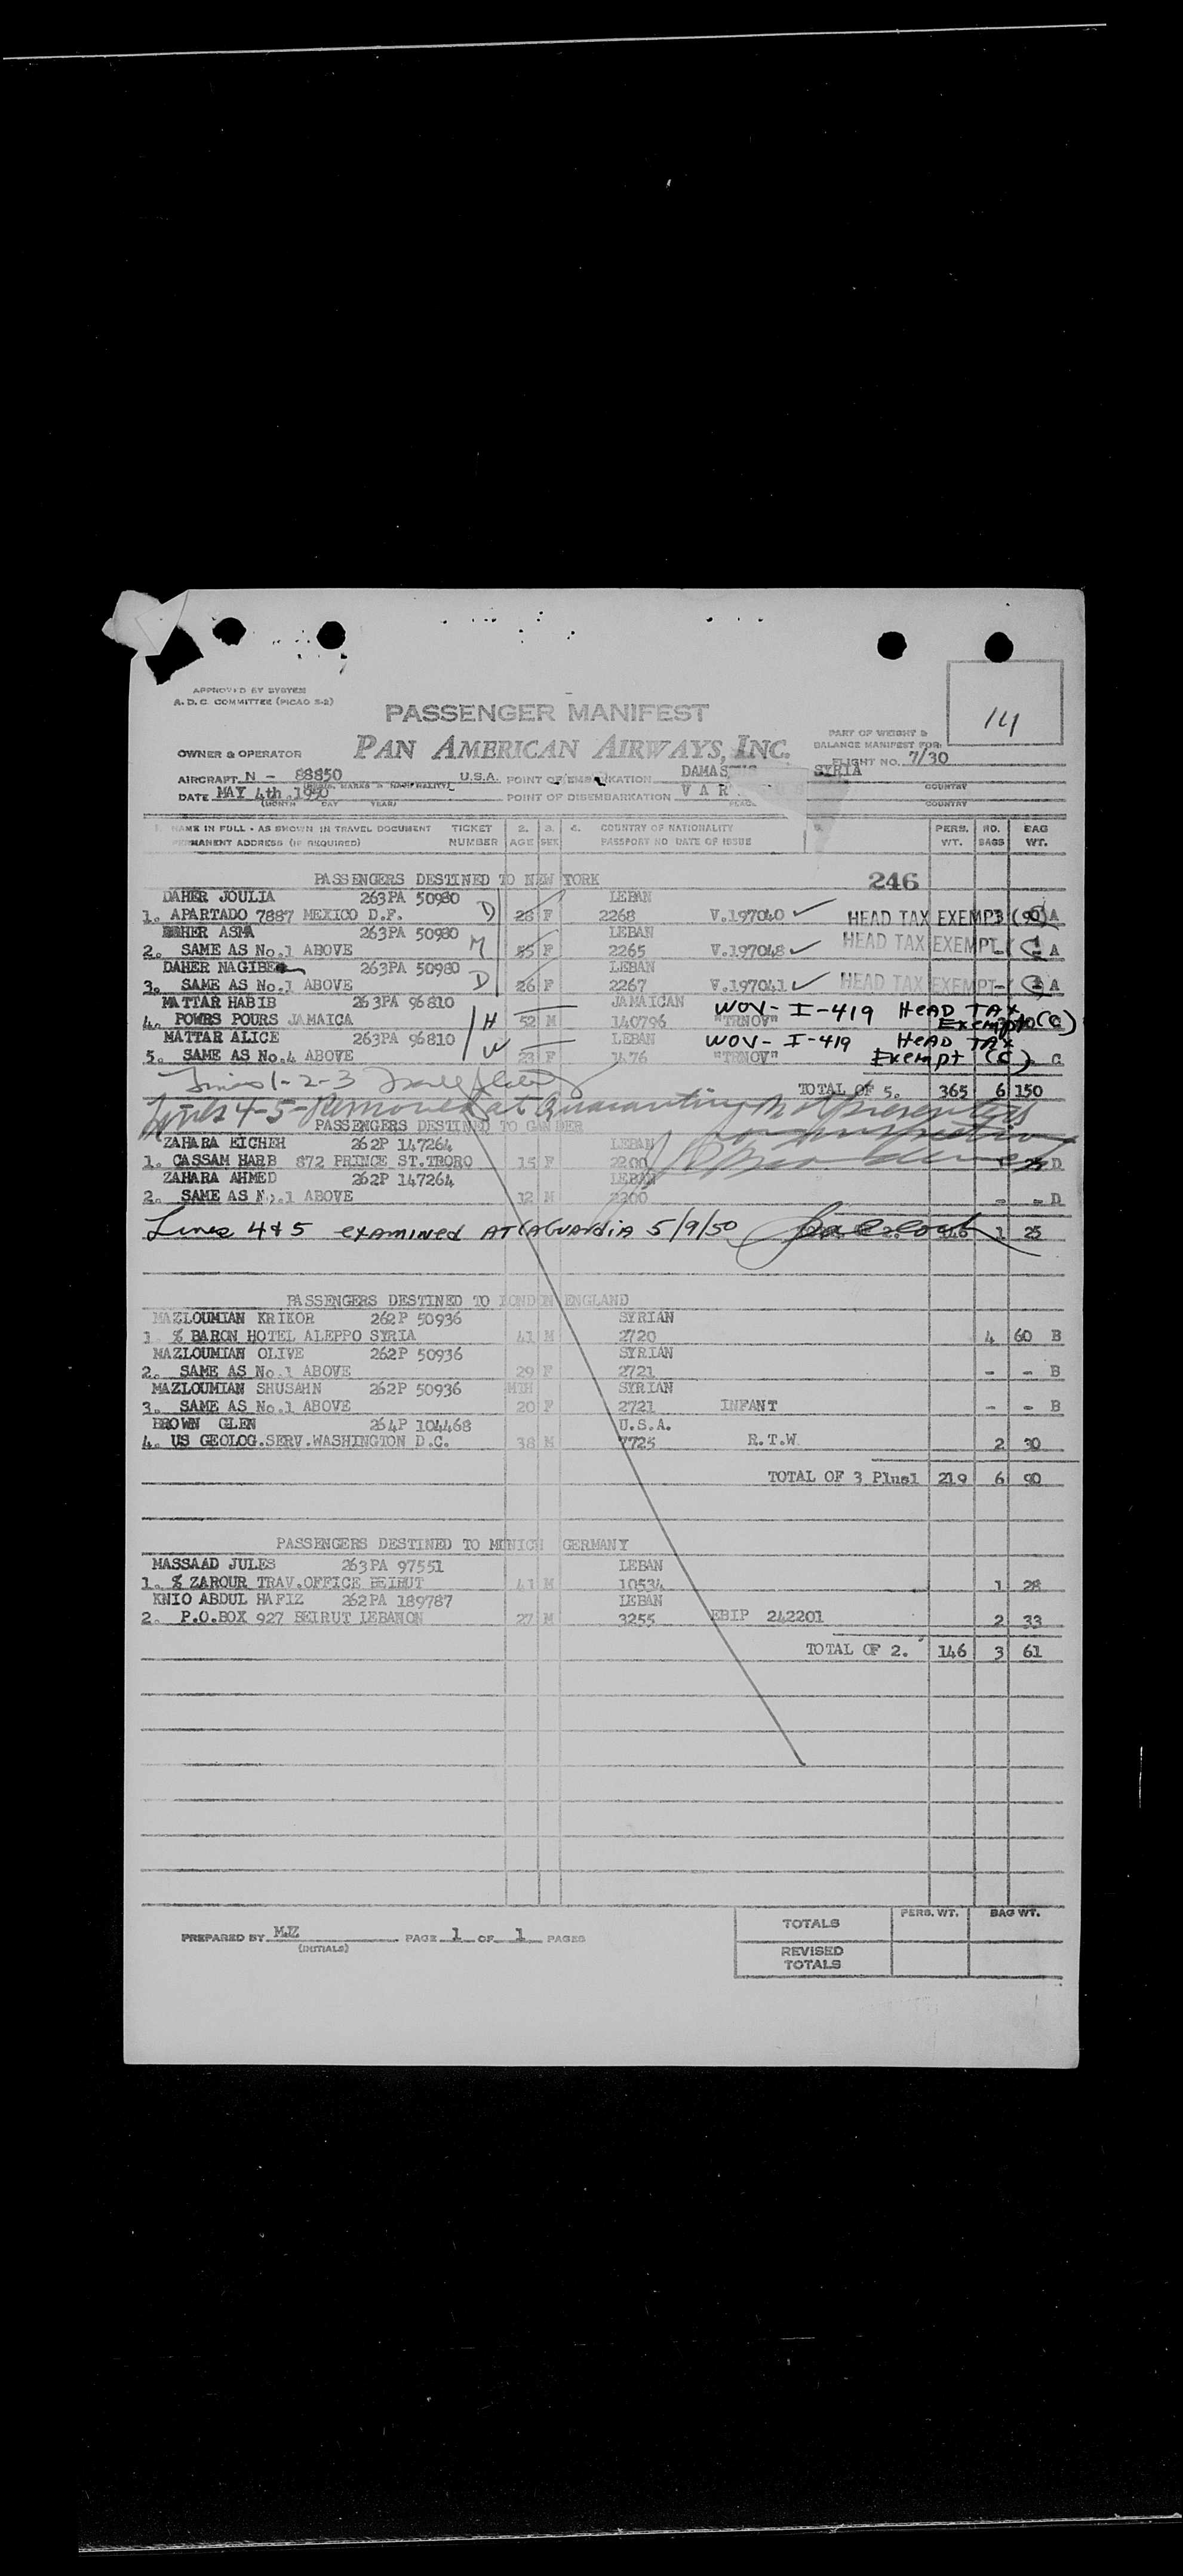 APPROVED BY SYSTEM
A. D. C. COMMITTEE (PICAO S-2)
PASSENGER MANIFEST
PAN AMERICAN AIRWAYS, INC.
141
PART OF WEIGHT &
BALANCE MANIFEST FOR:
FLIGHT NO. 7/30
OWNER & OPERATOR
AIRCRAFT N - 88850 U.S.A. POINT OF EMBARKATION DAMAS SYRIA
COUNTRY
DATE MAY 4th.1950 POINT OF DISEMBARKATION V A R
(MONTH DAY YEAR) COUNTRY
1. NAME IN FULL - AS SHOWN IN TRAVEL DOCUMENT TICKET 2. 3. 4. COUNTRY OF NATIONALITY PERS. NO. BAG
PERMANENT ADDRESS (IF REQUIRED) NUMBER AGE SEX PASSPORT NO DATE OF ISSUE WT. BAGS WT.
PASSENGERS DESTINED TO NEW YORK 246
DAHER JOULIA 263PA 50980 LEBAN
1. APARTADO 7887 MEXICO D.F. D 28 F 2268 V.197040 ✓ HEAD TAX EXEMPT 3 (90) A
DAHER ASMA 263PA 50980 LEBAN
2. SAME AS No.1 ABOVE M 55 F 2265 V.197048 ✓ HEAD TAX EXEMPT - A
DAHER NAGIBE 263PA 50980 LEBAN
3. SAME AS No.1 ABOVE D 26 F 2267 V.197041 ✓ HEAD TAX EXEMPT - A
MATTAR HABIB 263PA 96810 JAMAICAN WOV- I-419 HEAD TAX
4. POWRS POURS JAMAICA H 52 M 140796 "TRNOV" Exempt (C)
MATTAR ALICE 263PA 96810 LEBAN WOV- I-419 HEAD TAX
5. SAME AS No.4 ABOVE W 23 F 1476 "TRNOV" Exempt (C) C
Lines 1-2-3
TOTAL OF 5. 365 6 150
Lines 4-5-Removed at Quarantine Not presented
for inspection
PASSENGERS DESTINED TO GANDER
ZAHARA EICHEH 262P 147264 LEBAN
1. CASSAM HARB 872 PRINCE ST.TRORO 15 F 2200 D
ZAHARA AHMED 262P 147264 LEBAN
2. SAME AS No.1 ABOVE 12 M 2200 - - D
Lines 4 & 5 examined AT LAGUARDIA 5/9/50 1 25
PASSENGERS DESTINED TO LONDON ENGLAND
MAZLOUMIAN KRIKOR 262P 50936 SYRIAN
1 % BARON HOTEL ALEPPO SYRIA 41 M 2720 4 60 B
MAZLOUMIAN OLIVE 262P 50936 SYRIAN
2. SAME AS No.1 ABOVE 29 F 2721 - - B
MAZLOUMIAN SHUSAHN 262P 50936 MTH SYRIAN
3. SAME AS No.1 ABOVE 20 F 2721 INFANT - - B
BROWN GLEN 264P 104468 U.S.A.
4. US GEOLOG.SERV.WASHINGTON D.C. 38 M 7725 R.T.W. 2 30
TOTAL OF 3 Plus1 219 6 90
PASSENGERS DESTINED TO MUNICH GERMANY
MASSAAD JULES 263PA 97551 LEBAN
1. % ZAROUR TRAV.OFFICE BEIRUT 41 M 10534 1 28
KNIO ABDUL HAFIZ 262PA 189787 LEBAN
2. P.O.BOX 927 BEIRUT LEBANON 27 M 3255 EBIP 242201 2 33
TOTAL OF 2. 146 3 61
PERS. WT. BAG WT.
TOTALS
PREPARED BY MJZ PAGE 1 OF 1 PAGES
(INITIALS)
REVISED
TOTALS